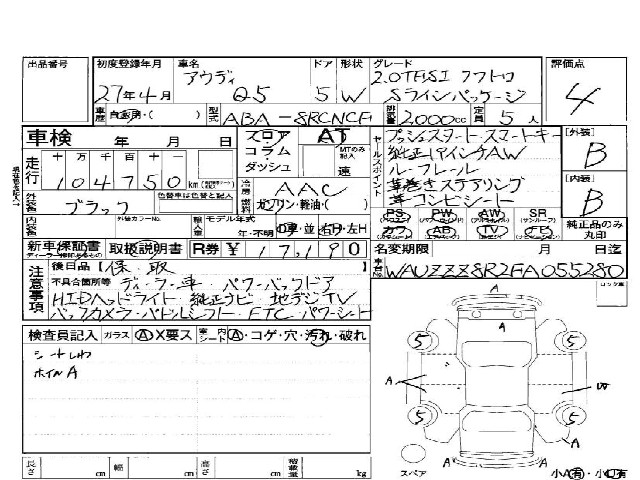 出品番号 初度登録年月 車名 ドア 形状 グレード 評価点
27年4月 アウディ Q5 5 W 2.0TFSI クワトロ Sラインパッケージ 4
車歴 自家用・( ) 型式 ABA-8RCNCF 排気量 2,000cc 定員 5人
車検 年 月 日 フロア・コラム・ダッシュ AT MTのみ記入 速
走行 十 万 千 百 十 一
104750 km
冷房 AAC
燃料 ガソリン・軽油・( )
外装色 ブラック 色替車は色替と記入
内装色 外装カラーNo. 輸入車 モデル年式 年・不明 D車・並 右H・左H
新車保証書 取扱説明書 R券 ¥ 17,190
セールスポイント プッシュスタート・スマートキー
純正19インチAW
ルーフレール
革巻きステアリング
革コンビシート
PS PW AW SR
カワ AB TV ナビ 純正品のみ丸印
[外装] B
[内装] B
名変期限 月 日迄
車台No. WAUZZZ8R2FA055280
注意事項 後日品【保、取
不具合箇所等 ディーラー車・パワーバックドア
HIDヘッドライト・純正ナビ・地デジTV
バックカメラ・パドルシフト・ETC・パワーシート
検査員記入 ガラス Ⓐ X要ス 室内シート Ⓐ・コゲ・穴・汚れ・破れ
シートしわ
ホイルA
A
A
5 5
A W
5 5
A
A
スペア 小A有・小U有
長さ cm 幅 cm 高さ cm 積載量 kg